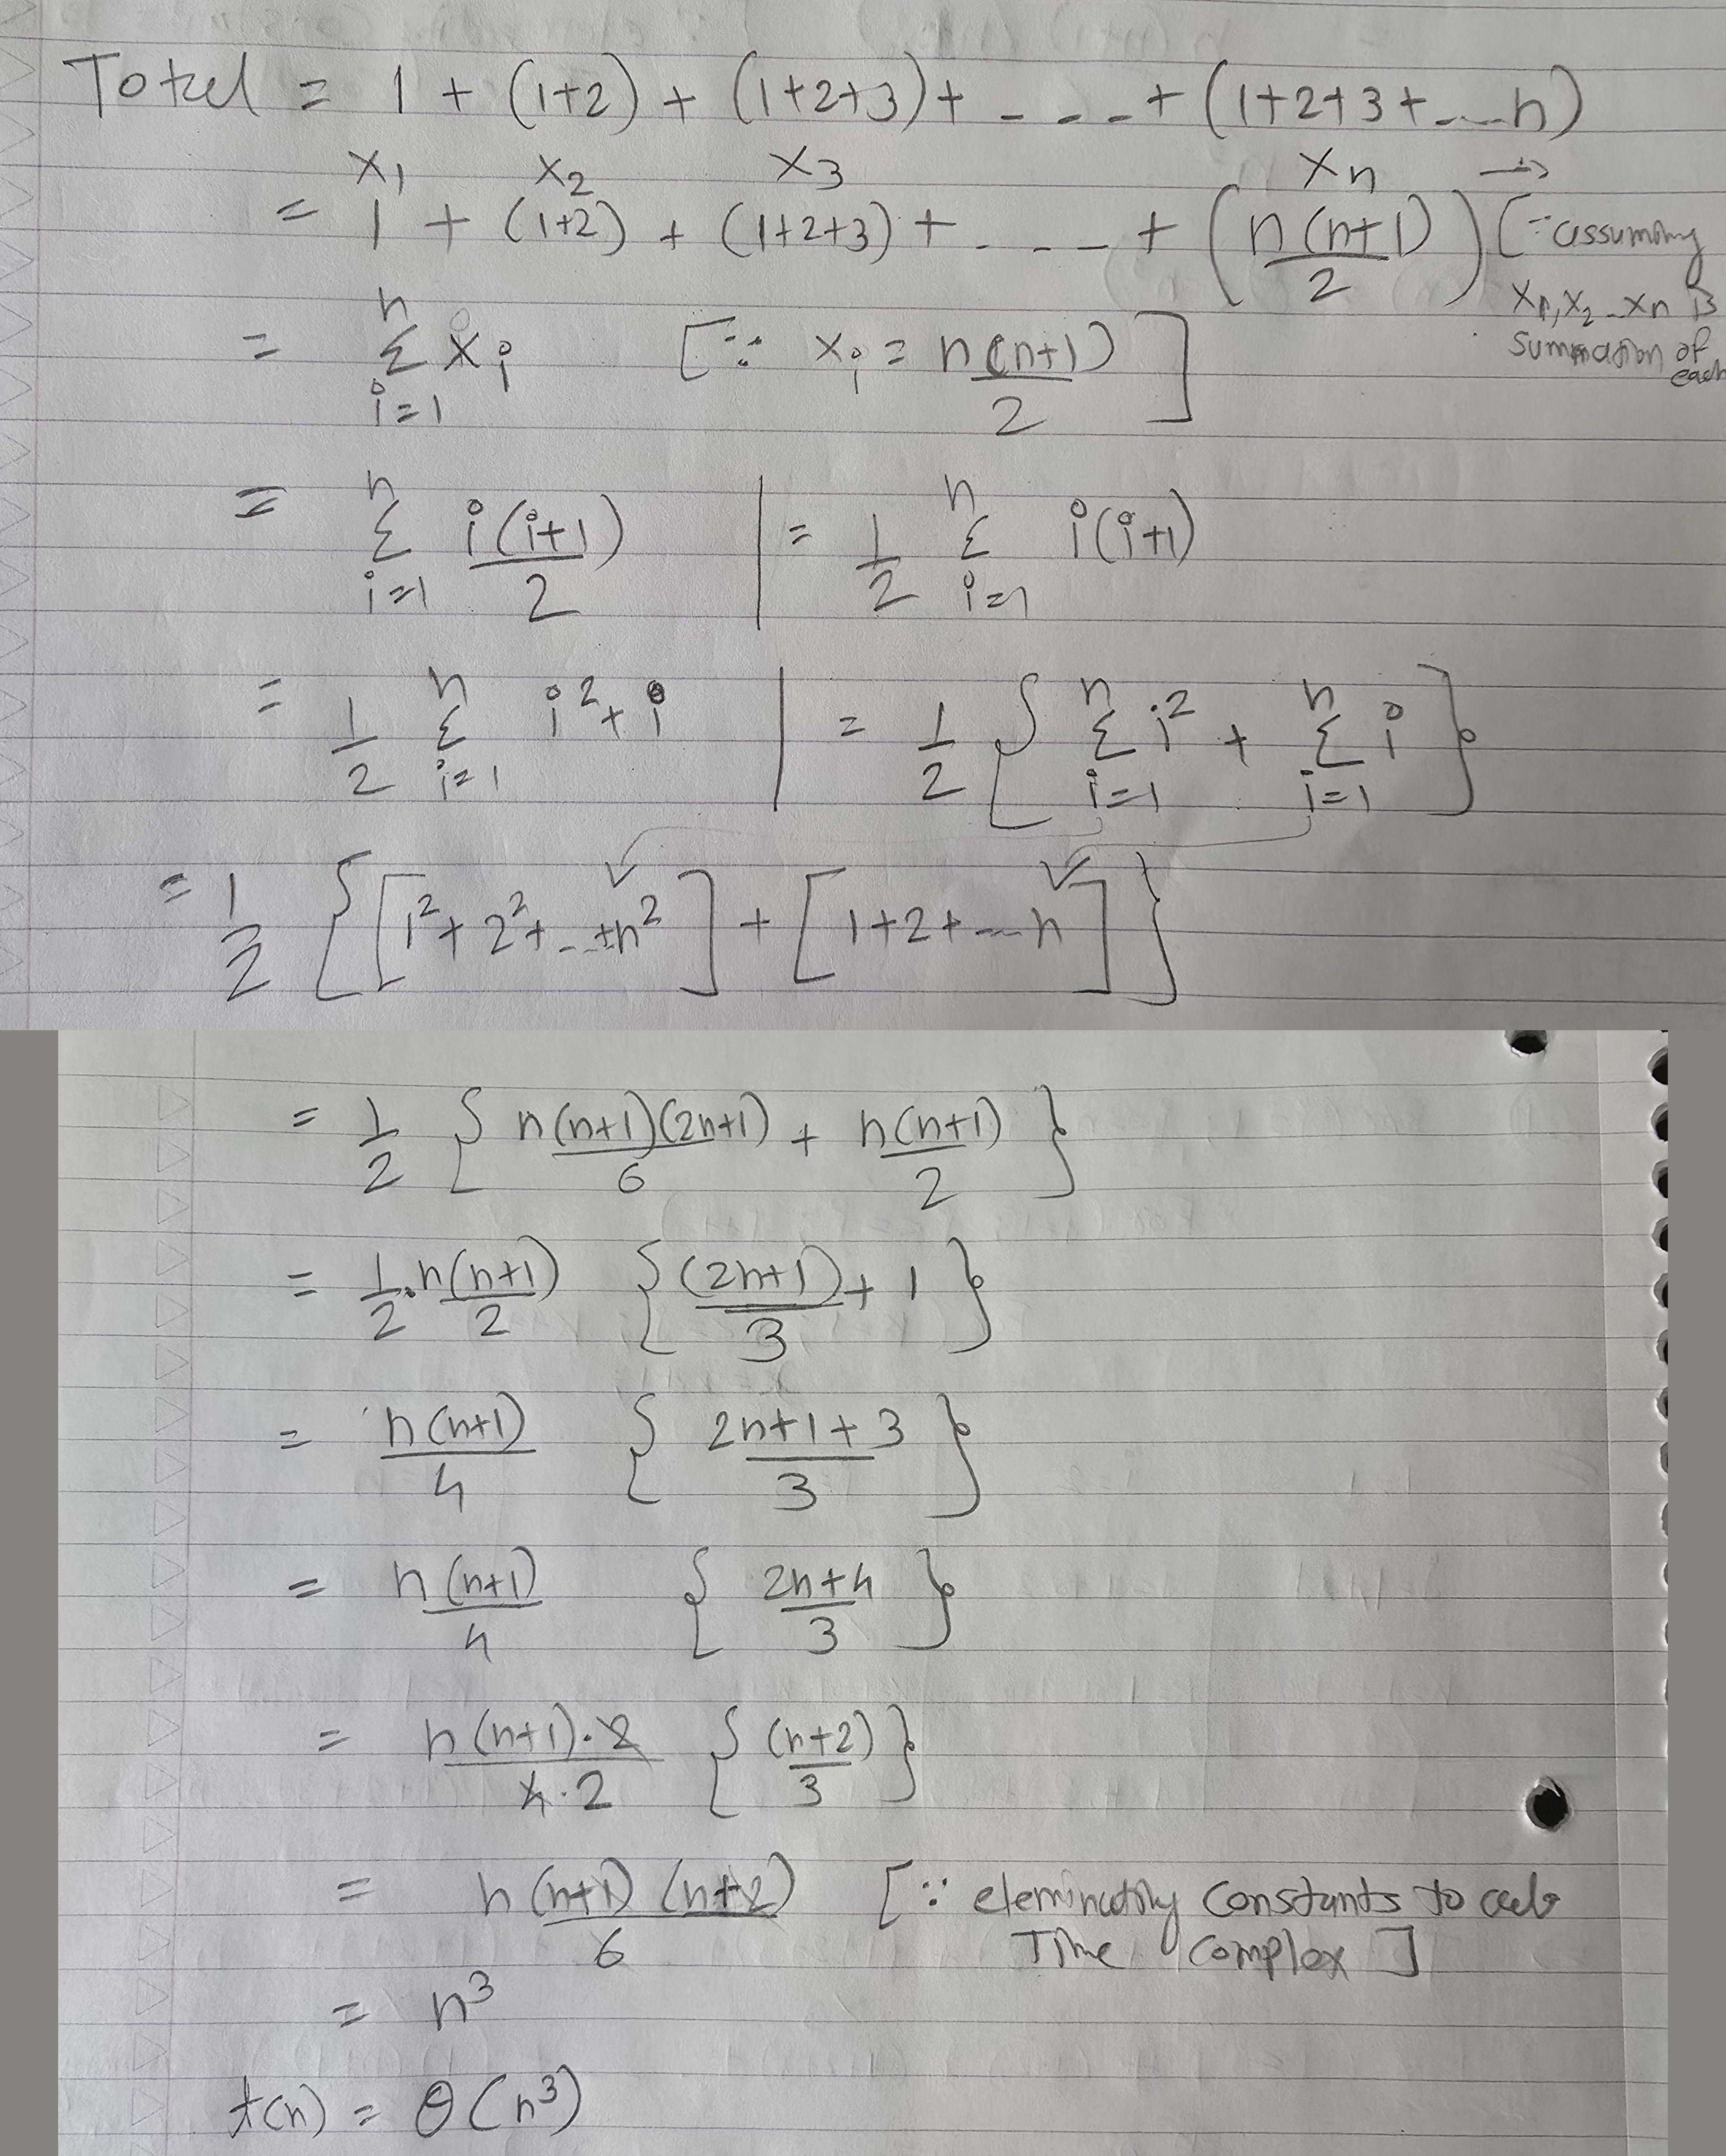 Total = 1 + (1+2) + (1+2+3) + - - - + (1+2+3+...n)
x₁ x₂ x₃ xₙ →
= 1 + (1+2) + (1+2+3) + - - - + (n(n+1)/2) [∵ assuming
x₁, x₂ - xₙ is
summation of
each
= Σ_{i=1}^{n} xᵢ [∵ xᵢ = n(n+1)/2]
= Σ_{i=1}^{n} i(i+1)/2 | = 1/2 Σ_{i=1}^{n} i(i+1)
= 1/2 Σ_{i=1}^{n} i² + i | = 1/2 { Σ_{i=1}^{n} i² + Σ_{i=1}^{n} i }
= 1/2 { [1² + 2² + ... + n²] + [1+2+...n] }
= 1/2 { n(n+1)(2n+1)/6 + n(n+1)/2 }
= 1/2 · n(n+1)/2 { (2n+1)/3 + 1 }
= n(n+1)/4 { 2n+1+3/3 }
= n(n+1)/4 { 2n+4/3 }
= n(n+1)·2/4·2 { (n+2)/3 }
= n(n+1)(n+2)/6 [∵ eleminating Constants to
Time complex]
= n³
t(n) = θ(n³)